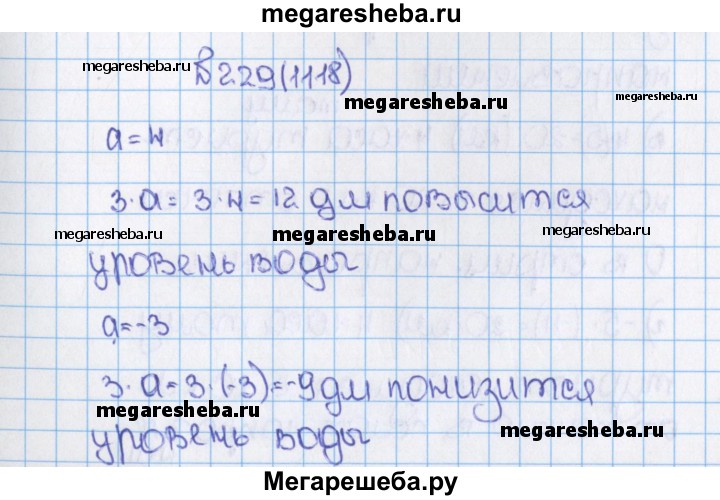 megaresheba.ru
megaresheba.ru
В 2.29(1118)
megaresheba.ru
megaresheba.ru
a = 4
3·a = 3·4 = 12 дм повысится
megaresheba.ru
megaresheba.ru
megaresheba.ru
уровень воды
a = -3
3·a = 3·(-3) = -9 дм понизится
megaresheba.ru
megaresheba.ru
уровень воды
Мегарешеба.ру